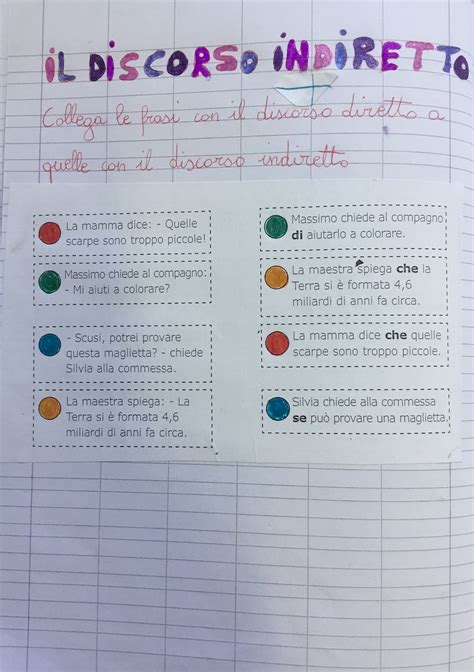 IL DISCORSO INDIRETTO
Collega le frasi con il discorso diretto a
quelle con il discorso indiretto
La mamma dice: - Quelle
scarpe sono troppo piccole!
Massimo chiede al compagno:
- Mi aiuti a colorare?
- Scusi, potrei provare
questa maglietta? - chiede
Silvia alla commessa.
La maestra spiega: - La
Terra si è formata 4,6
miliardi di anni fa circa.
Massimo chiede al compagno
di aiutarlo a colorare.
La maestra spiega che la
Terra si è formata 4,6
miliardi di anni fa circa.
La mamma dice che quelle
scarpe sono troppo piccole.
Silvia chiede alla commessa
se può provare una maglietta.